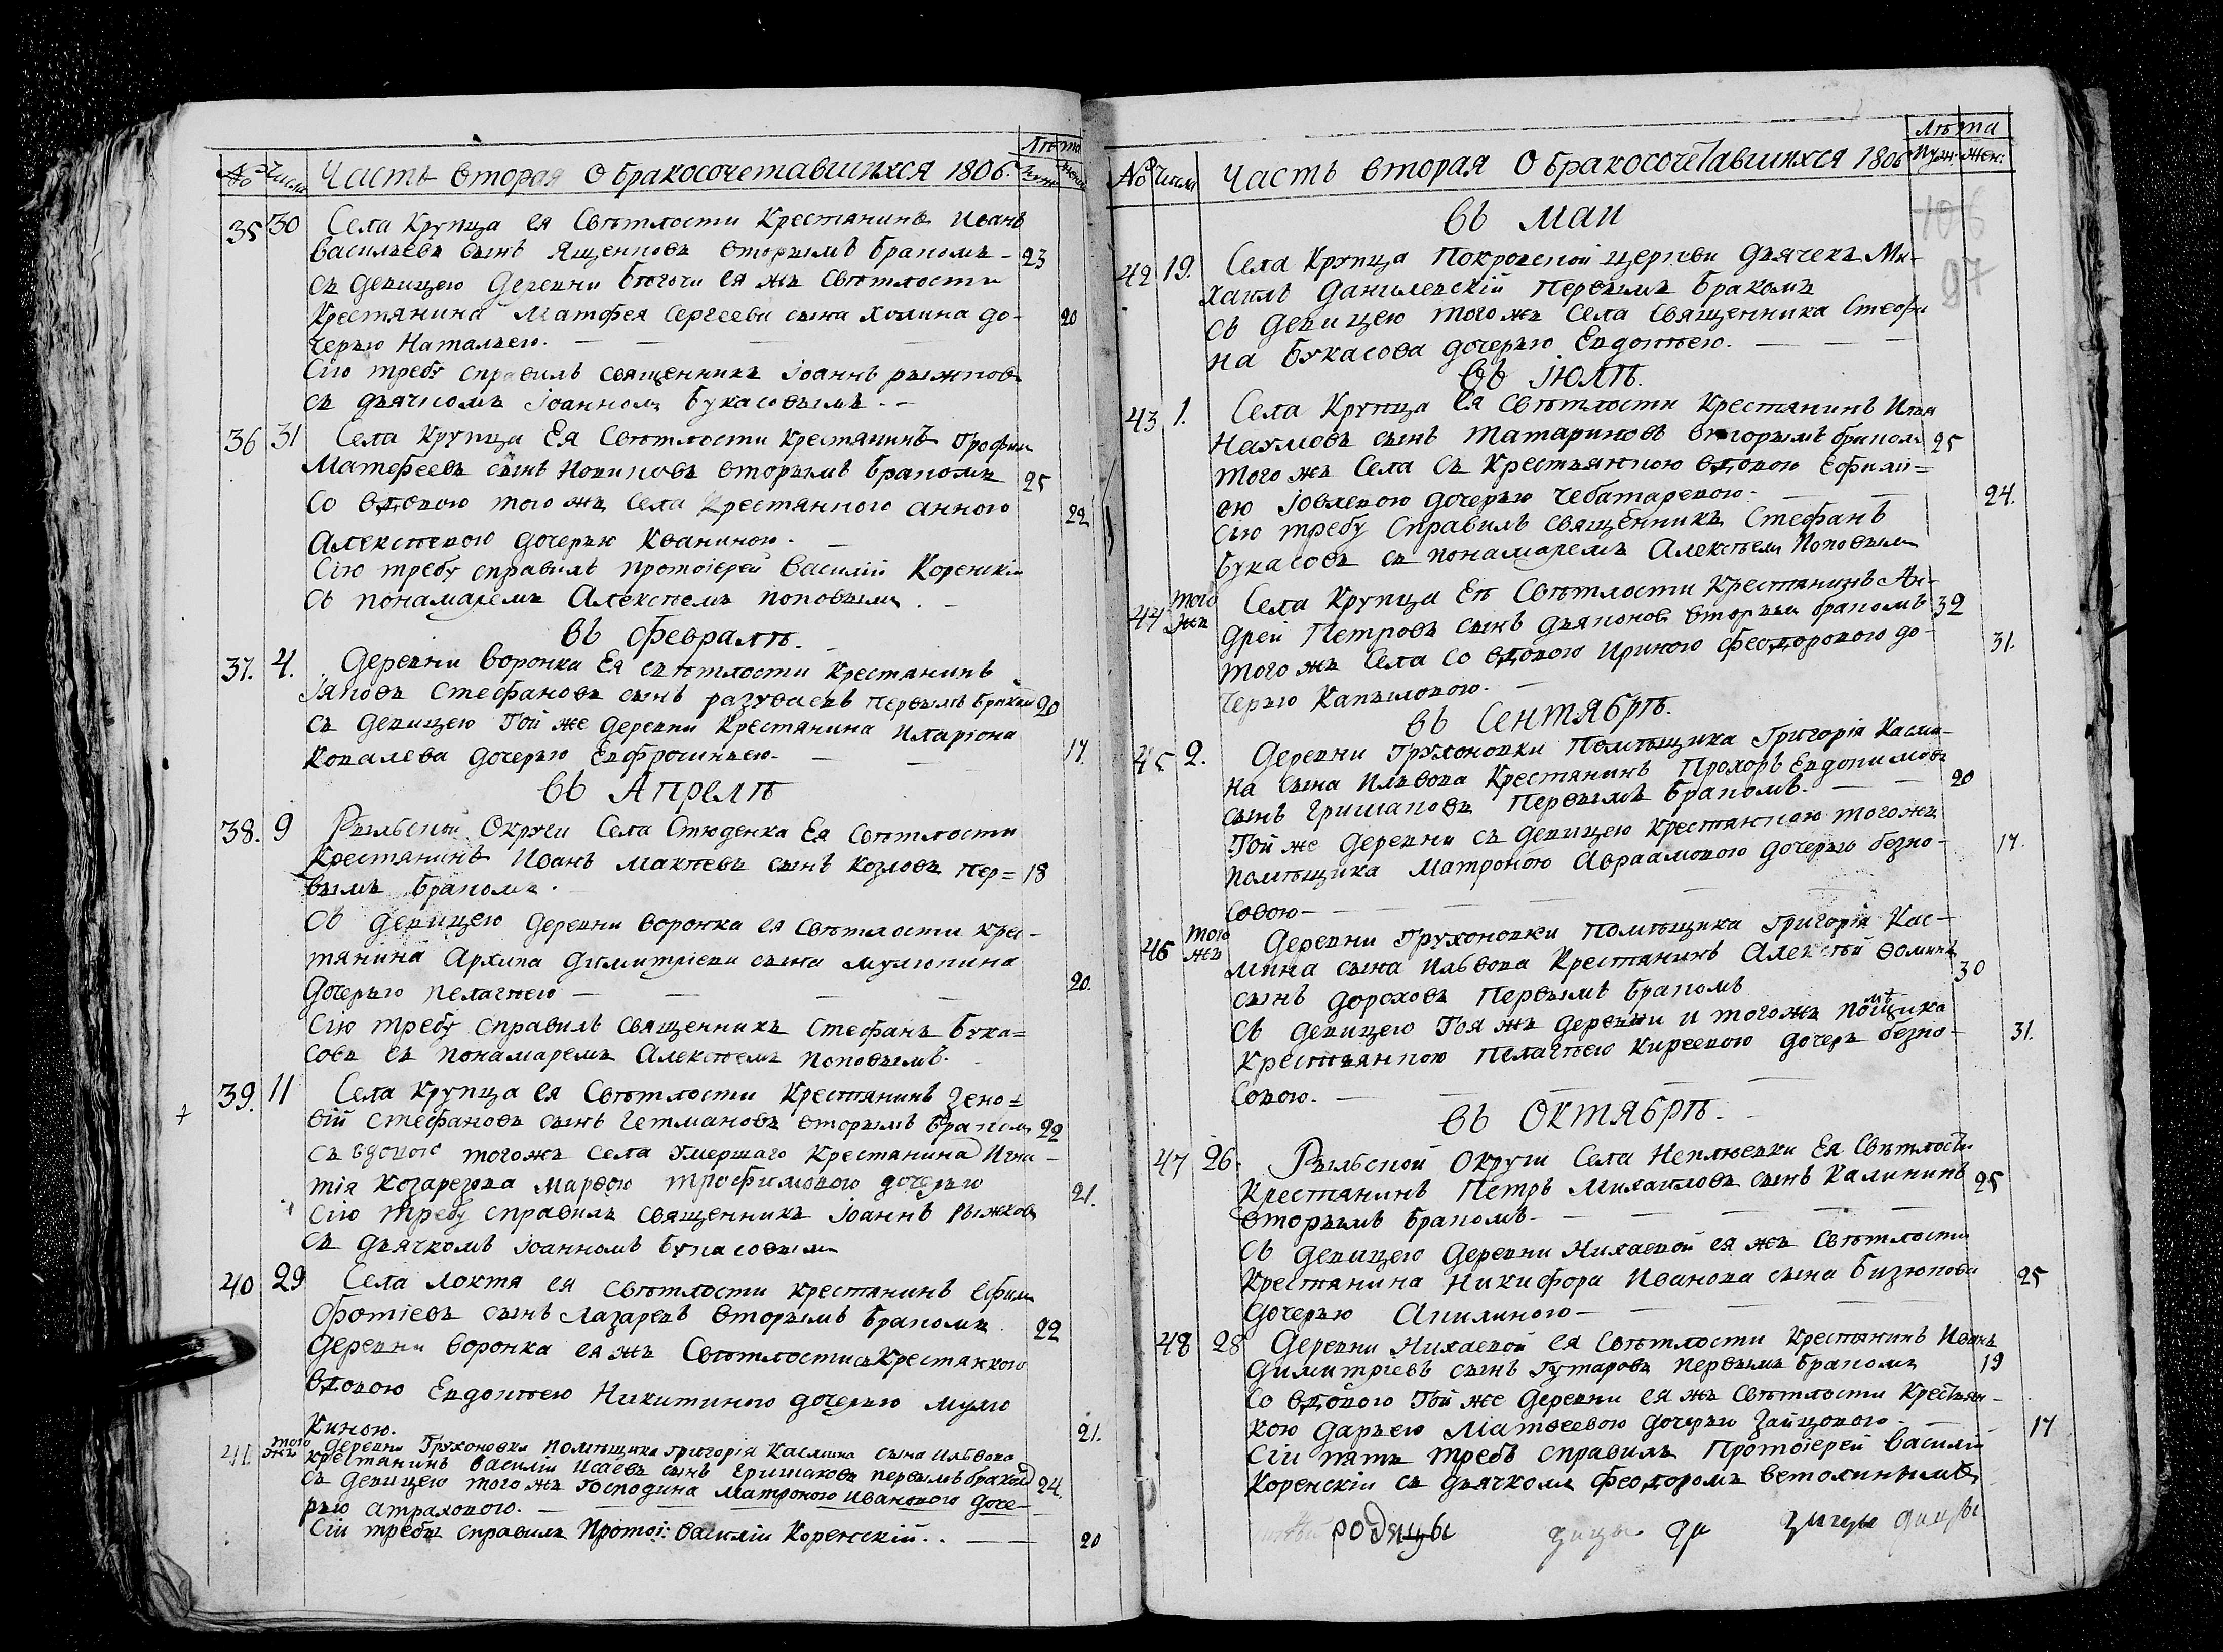 Лѣта
№ Числа Часть вторая О бракосочетавшихся 1806: муж: жен:
35 30 Села Крупца ея Свѣтлости Крестянинъ Иванъ
васильевъ сынъ Ященковъ вторымъ бракомъ - 23
съ девицею деревни бегочи ея жъ свѣтлости
Крестянина Матфея Сергеева сына Холина до- 20
черью Натальею.
Сію требу справилъ священникъ іоаннъ рыжковъ
съ дьячкомъ іоанномъ букасовымъ.
36 31 Села Крупца Ея Свѣтлости Крестянинъ Трофим
Матфеевъ сынъ Новиковъ вторымъ бракомъ 25
Со вдовою того жъ села Крестянкою анною 22
Алексѣевою дочерью Кваниною.
Сію требу справилъ протоіерей Василій Коренскій
съ понамаремъ Алексѣемъ поповымъ.
въ февралѣ.
37. 4. Деревни Воронка Ея свѣтлости Крестянинъ
іяковъ Стефановъ сынъ разуваевъ первымъ бракомъ 20
съ девицею Той же деревни Крестянина Иларіона
Ковалева дочерью Евфросиньею. 17.
въ Апрелѣ
38. 9 Рыльской Округи Села Студенка Ея Свѣтлости
Крестянинъ Иванъ Макѣевъ сынъ Козловъ пер= 18
вымъ бракомъ.
Съ девицею деревни воронка ея свѣтлости крес-
тянина Архипа Димитріева сына мулюкина
дочерью пелагѣею 20.
Сію требу справилъ священникъ Стефанъ Бука=
совъ съ понамаремъ Алексѣемъ поповымъ.
39. 11 Села Крупца ея Свѣтлости Крестянинъ Зено=
вій Стефановъ сынъ Гетмановъ вторымъ бракомъ 22
съ вдовою тогожъ села умершаго Крестянина Игна-
тія Козарезова марѳою Трофимовою дочерью 21.
Сію требу справилъ священникъ іоаннъ Рыжковъ
съ дьячкомъ іоанномъ букасовымъ
40 29 Села локтя ея свѣтлости крестянинъ Ефим
Фотіевъ сынъ Лазаревъ вторымъ бракомъ. 22
Деревни воронка ея жъ Свѣтлости съ Крестянкою
вдовою Евдокѣею Никитиною дочерью мулю
киною. 21.
41. того жъ деревни Грухоновки помѣщика григорія Касмина сына ильвова
крестянинъ василій Исаевъ сынъ Гришаковъ первымъ бракомъ
съ девицею того жъ Господина Матроною Ивановою доче- 24.
рью атраховою.
Сіи требы справилъ Протоі: василій Коренскій. 20
Лѣта
№ Числа Часть вторая О бракосочетавшихся 1806 муж: жен:
106
97
въ маи
42 19. Села Крупца Покровской церкви дьячекъ Ми-
хаилъ Данилевскій первымъ бракомъ
съ девицею того жъ Села Священника Стефа
на Букасова дочерью Евдокѣею.
въ іюлѣ.
43 1. Села Крупца ея свѣтлости Крестянинъ Илья
Наумовъ сынъ татариновъ вторымъ бракомъ 25
того жъ Села съ Крестьянкою вдовою Ефимі=
ею іовлевою дочерью чебатаревою. 24.
Сію требу Справилъ священникъ Стефанъ
букасовъ съ понамаремъ Алексѣемъ Поповымъ
44 того жъ Села Крупца Еѣ Свѣтлости Крестянинъ Ан-
дрей Петровъ сынъ дьяконовъ вторымъ бракомъ 32
того жъ Села со вдовою Ириною феодоровою до- 31.
черью Капыловою.
въ Сентябрѣ.
45 2. Деревни Грухоновки Помѣщика Григорія Касми-
на сына Ильвова Крестянинъ Прохоръ Евдокимовъ
сынъ Гришаковъ Первымъ бракомъ. 20
Той же деревни съ девицею Крестянкою того жъ
помѣщика Матроною Авраамовою дочерью безно- 17.
совою
46 того жъ Деревни Грухоновки помѣщика Григорія Кас-
мина сына Ильвова Крестянинъ Алексѣй Фоминъ
сынъ дороховъ Первымъ бракомъ 30
съ девицею Тоя жъ деревни и того жъ помѣщика
Крестьянкою Пелагѣею киреевою дочерь безно- 31.
совою.
въ Октябрѣ.
47 26. Рыльской Округи Села Неплюевки Ея Свѣтлости
Крестянинъ Петръ Михаиловъ сынъ Калининъ 25
вторымъ бракомъ
съ девицею Деревни Нихаевой ея жъ Свѣтлости
Крестянина Никифора Иванова сына бизюкова 25
дочерью Акилиною
48 28 Деревни Нихаевой ея Свѣтлости Крестянинъ Иванъ
Димитріевъ сынъ Гутаровъ первымъ бракомъ 19
Со вдовою Той же Деревни ея жъ свѣтлости Крестьян-
кою дарьею Матвеевою дочерью Зайцовою 17
Сіи пять требъ справилъ Протоіерей Василій
Коренскій съ дьячкомъ феодоромъ ветохинымъ
родицы дицы ди дицы дицы